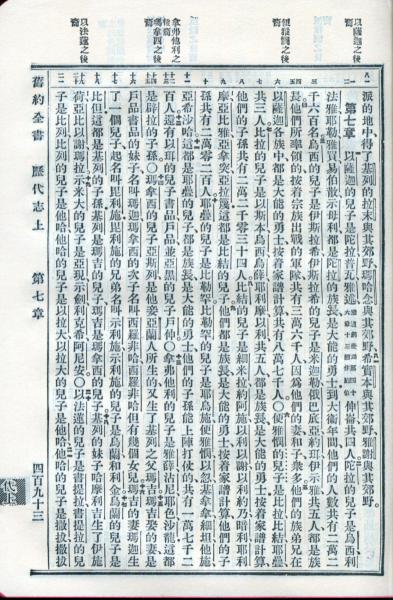 以薩迦之後裔
便雅憫之後裔
拿弗他利之後裔
瑪拿西之後裔
以法蓮之後裔
派的地中得了基列的拉末與其郊野瑪哈念與其郊野希實本與其郊野雅謝與其郊野
第七章 以薩迦的兒子是陀拉普瓦雅述伸崙共四人陀拉的兒子是烏西利
法雅耶勒雅買易伯散示母利都是陀拉的族長是大能的勇士到大衛年間他們的人數共有二萬二
千六百名烏西的兒子是伊斯拉希伊斯拉希的兒子是米迦勒俄巴底亞約珥伊示雅共五人都是族
長他們所率領的按着宗族出戰的軍隊共有三萬六千人因爲他們的妻和子衆多他們的族弟兄在
以薩迦各族中都是大能的勇士按着家譜計算共有八萬七千人〇便雅憫的兒子是比拉比結耶疊
共三人比拉的兒子是以斯本烏西烏薛耶利摩以利共五人都是族長是大能的勇士按着家譜計算
他們的子孫共有二萬二千零三十四人比結的兒子是細米拉約阿施以利以謝以利約乃暗利耶利
摩亞比雅亞拿突亞拉篾這都是比結的兒子他們都是族長是大能的勇士按着家譜計算他們的子
孫共有二萬零二百人耶疊的兒子是比勒罕比勒罕的兒子是耶烏施便雅憫以忽基拿拿細坦他施
亞希沙哈這都是耶疊的兒子都是族長是大能的勇士他們的子孫能上陣打仗的共有一萬七千二
百人還有以珥的兒子書品戶品並亞黑的兒子戶伸〇拿弗他利的兒子是雅薛沽尼耶色沙龍這都
是辟拉的子孫〇瑪拿西的兒子亞斯列是他妾亞蘭人所生的又生了基列之父瑪吉瑪吉娶的妻是
戶品書品的妹子名叫瑪迦瑪拿西的次子名叫西羅非哈西羅非哈但有幾個女兒瑪吉的妻瑪迦生
了一個兒子起名叫毘利施毘利施的兄弟名叫示利施示利施的兒子是烏蘭和利金烏蘭的兒子是
比但這都是基列的子孫基列是瑪吉的兒子瑪吉是瑪拿西的兒子基列的妹子哈摩利吉生了伊施
荷亞比以謝瑪拉示米大的兒子是亞現示劍利克希阿尼安〇以法蓮的兒子是書提拉書提拉的兒
子是比列比列的兒子是他哈他哈的兒子是以拉大以拉大的兒子是他哈他哈的兒子是撒拔撒拔
舊約全書 歷代志上 第七章 四百九十三
代上